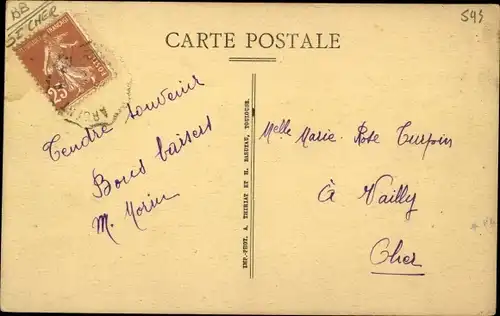 BB
St CHER
545
RÉPUBLIQUE FRANÇAISE
POSTES
25
CARTE POSTALE
Tendre souvenir
Bons baisers
M. Morin
IMP.-PHOT. A. THIRIAT ET H. BASUYAU, TOULOUSE.
Melle Marie-Rose Turpin
à Vailly
Cher